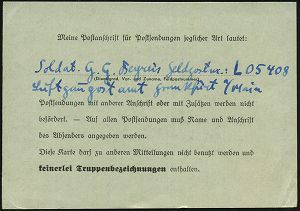 Meine Postanschrift für Postsendungen jeglicher Art lautet:
Soldat. G. G. Feldpostnr.: L 05408
(Dienstgrad, Vor- und Zuname, Feldpostnummer)
Luftgaupostamt Frankfurt / Main
Postsendungen mit anderer Anschrift oder mit Zusätzen werden nicht
befördert. — Auf allen Postsendungen muß Name und Anschrift
des Absenders angegeben werden.
Diese Karte darf zu anderen Mitteilungen nicht benutzt werden und
keinerlei Truppenbezeichnungen enthalten.